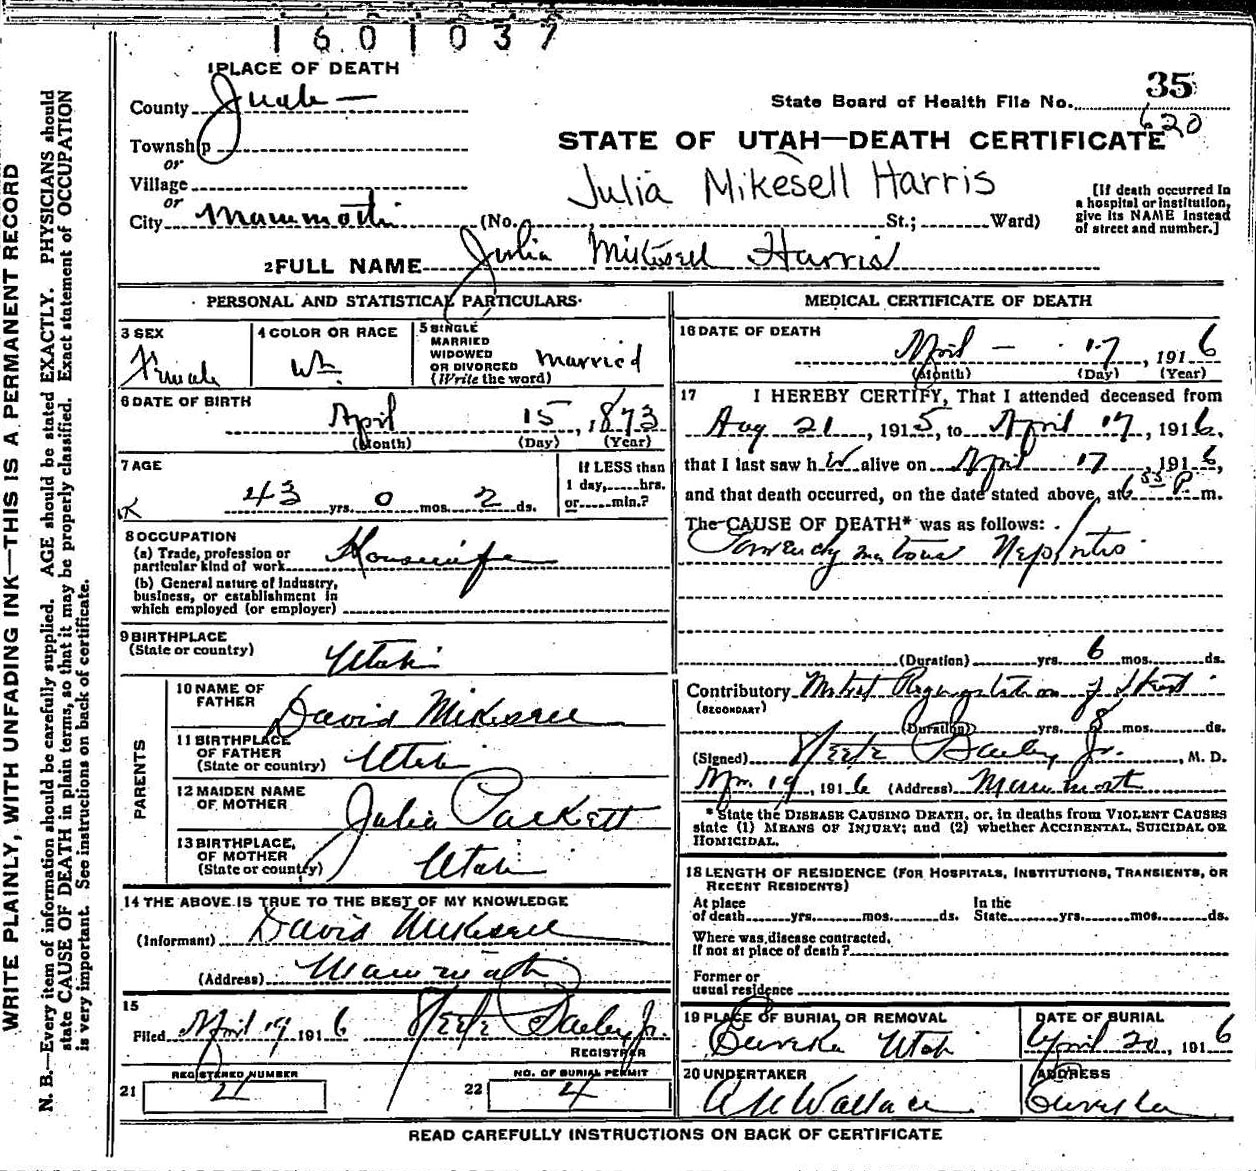 1601037
1 PLACE OF DEATH
County Juab
35
State Board of Health File No.
620
Township
or
STATE OF UTAH—DEATH CERTIFICATE
Village
or
Julia Mikesell Harris
[If death occurred in
a hospital or institution,
give its NAME instead
of street and number.]
City Mammoth (No. St.; Ward)
2 FULL NAME Julia Mikesell Harris
PERSONAL AND STATISTICAL PARTICULARS
3 SEX
Female
4 COLOR OR RACE
Wh
5 SINGLE
MARRIED
WIDOWED
OR DIVORCED
(Write the word)
married
6 DATE OF BIRTH
April 15, 1873
(Month) (Day) (Year)
7 AGE
43 yrs. 0 mos. 2 ds.
If LESS than
1 day, hrs.
or min.?
8 OCCUPATION
(a) Trade, profession or
particular kind of work Housewife
(b) General nature of Industry,
business, or establishment in
which employed (or employer)
9 BIRTHPLACE
(State or country)
Utah
PARENTS
10 NAME OF
FATHER
David Mikesell
11 BIRTHPLACE
OF FATHER
(State or country) Utah
12 MAIDEN NAME
OF MOTHER
Julia Packett
13 BIRTHPLACE,
OF MOTHER
(State or country) Utah
14 THE ABOVE IS TRUE TO THE BEST OF MY KNOWLEDGE
(Informant) David Mikesell
(Address) Mammoth
15
Filed April 19 1916 Steele Bailey Jr.
REGISTRAR
21 REGISTERED NUMBER
21
22 NO. OF BURIAL PERMIT
4
MEDICAL CERTIFICATE OF DEATH
16 DATE OF DEATH
April — 17, 1916
(Month) (Day) (Year)
17 I HEREBY CERTIFY, That I attended deceased from
Aug 21, 1915, to April 17, 1916,
that I last saw her alive on April 17, 1916,
and that death occurred, on the date stated above, at 6 55 P. m.
The CAUSE OF DEATH* was as follows:
Nephritis
(Duration) yrs. 6 mos. ds.
Contributory Mitral Regurgitation of Heart
(SECONDARY)
(Duration) yrs. 8 mos. ds.
(Signed) Steele Bailey Jr., M. D.
Apr. 19, 1916 (Address) Mammoth
* State the DISEASE CAUSING DEATH, or, in deaths from VIOLENT CAUSES
state (1) MEANS OF INJURY; and (2) whether ACCIDENTAL, SUICIDAL OR
HOMICIDAL.
18 LENGTH OF RESIDENCE (FOR HOSPITALS, INSTITUTIONS, TRANSIENTS, OR
RECENT RESIDENTS)
At place
of death yrs. mos. ds.
In the
State yrs. mos. ds.
Where was disease contracted,
If not at place of death?
Former or
usual residence
19 PLACE OF BURIAL OR REMOVAL
Eureka Utah
DATE OF BURIAL
April 20, 1916
20 UNDERTAKER
A N Wallace
ADDRESS
Eureka
READ CAREFULLY INSTRUCTIONS ON BACK OF CERTIFICATE
WRITE PLAINLY, WITH UNFADING INK—THIS IS A PERMANENT RECORD
N. B.—Every item of information should be carefully supplied. AGE should be stated EXACTLY. PHYSICIANS should
state CAUSE OF DEATH in plain terms, so that it may be properly classified. Exact statement of OCCUPATION
is very important. See instructions on back of certificate.